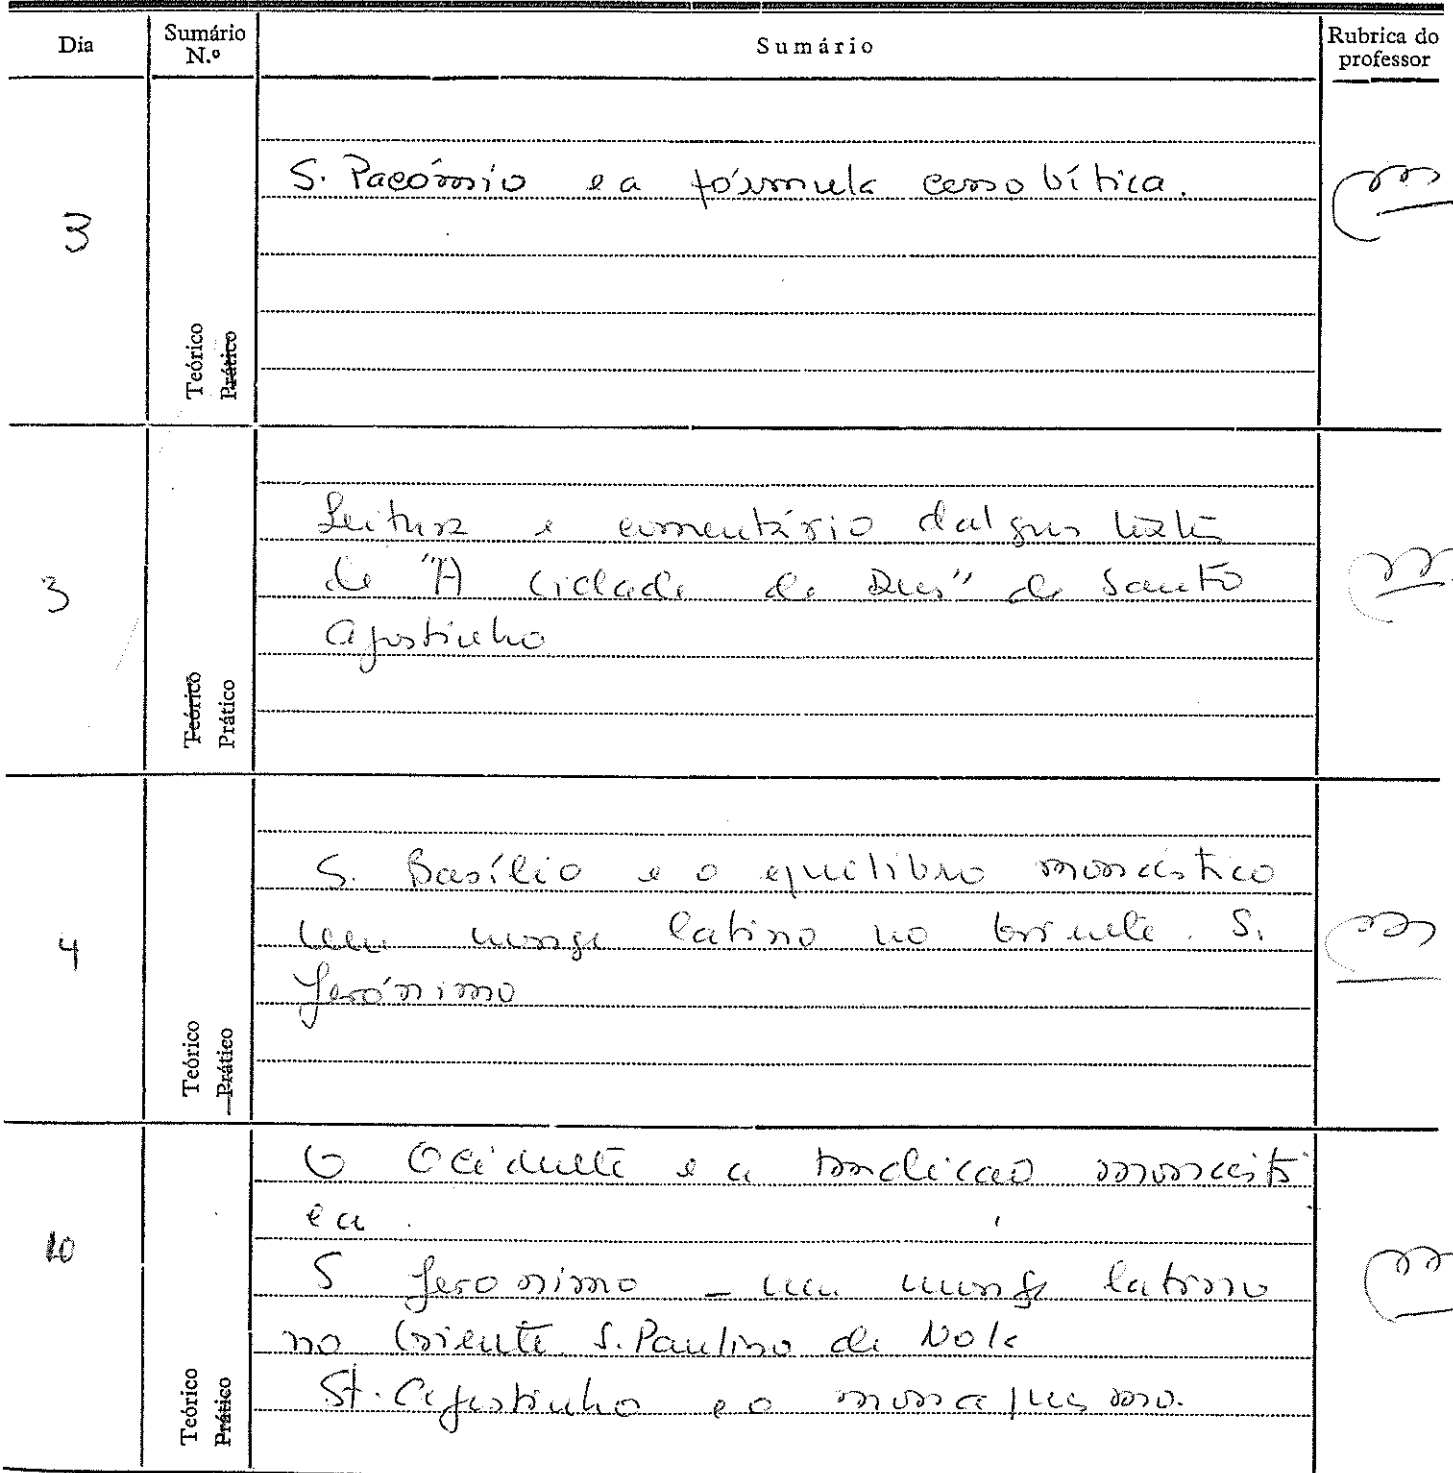 Dia Sumário N.º Sumário Rubrica do professor
3
Teórico
Prático
S. Pacómio e a fórmula cenobítica.
3
Teórico
Prático
Leitura e comentário dalguns textos
de "A cidade de Deus" de Santo
Agostinho
4
Teórico
Prático
S. Basílio e o equilibro monástico
um monge latino no Oriente. S.
Jerónimo
10
Teórico
Prático
O Ocidente e a tradicao monásti
ca.
S Jeronimo – um monge latino
no Oriente. S. Paulino de Nola
St. Agostinho e o monaquismo.